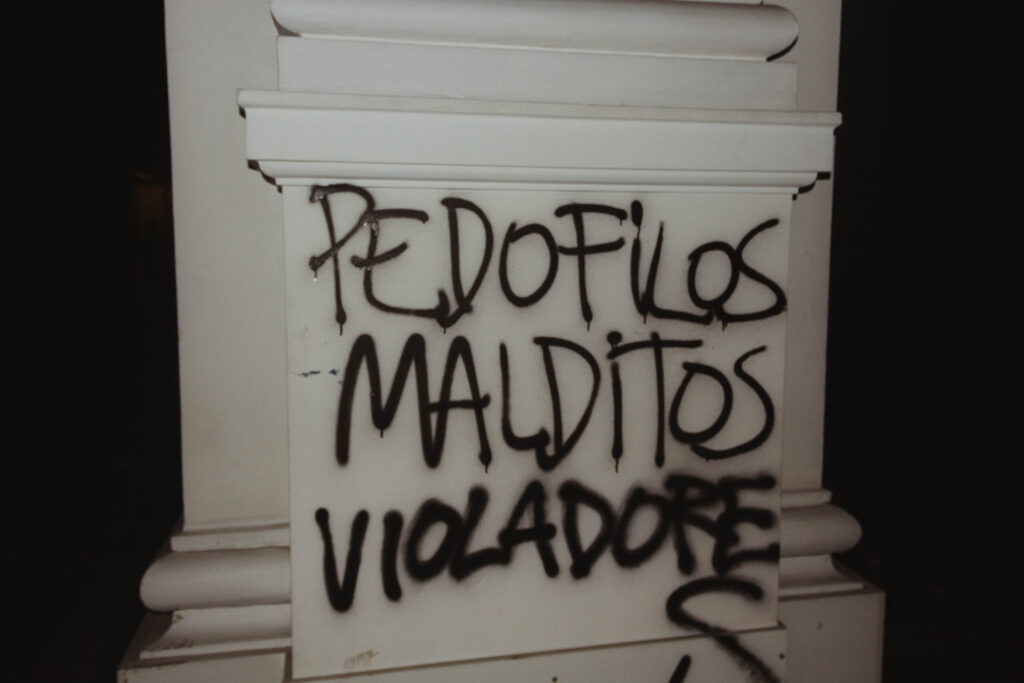 PEDOFiLOS
MALDiTOS
VIOLADORE
S